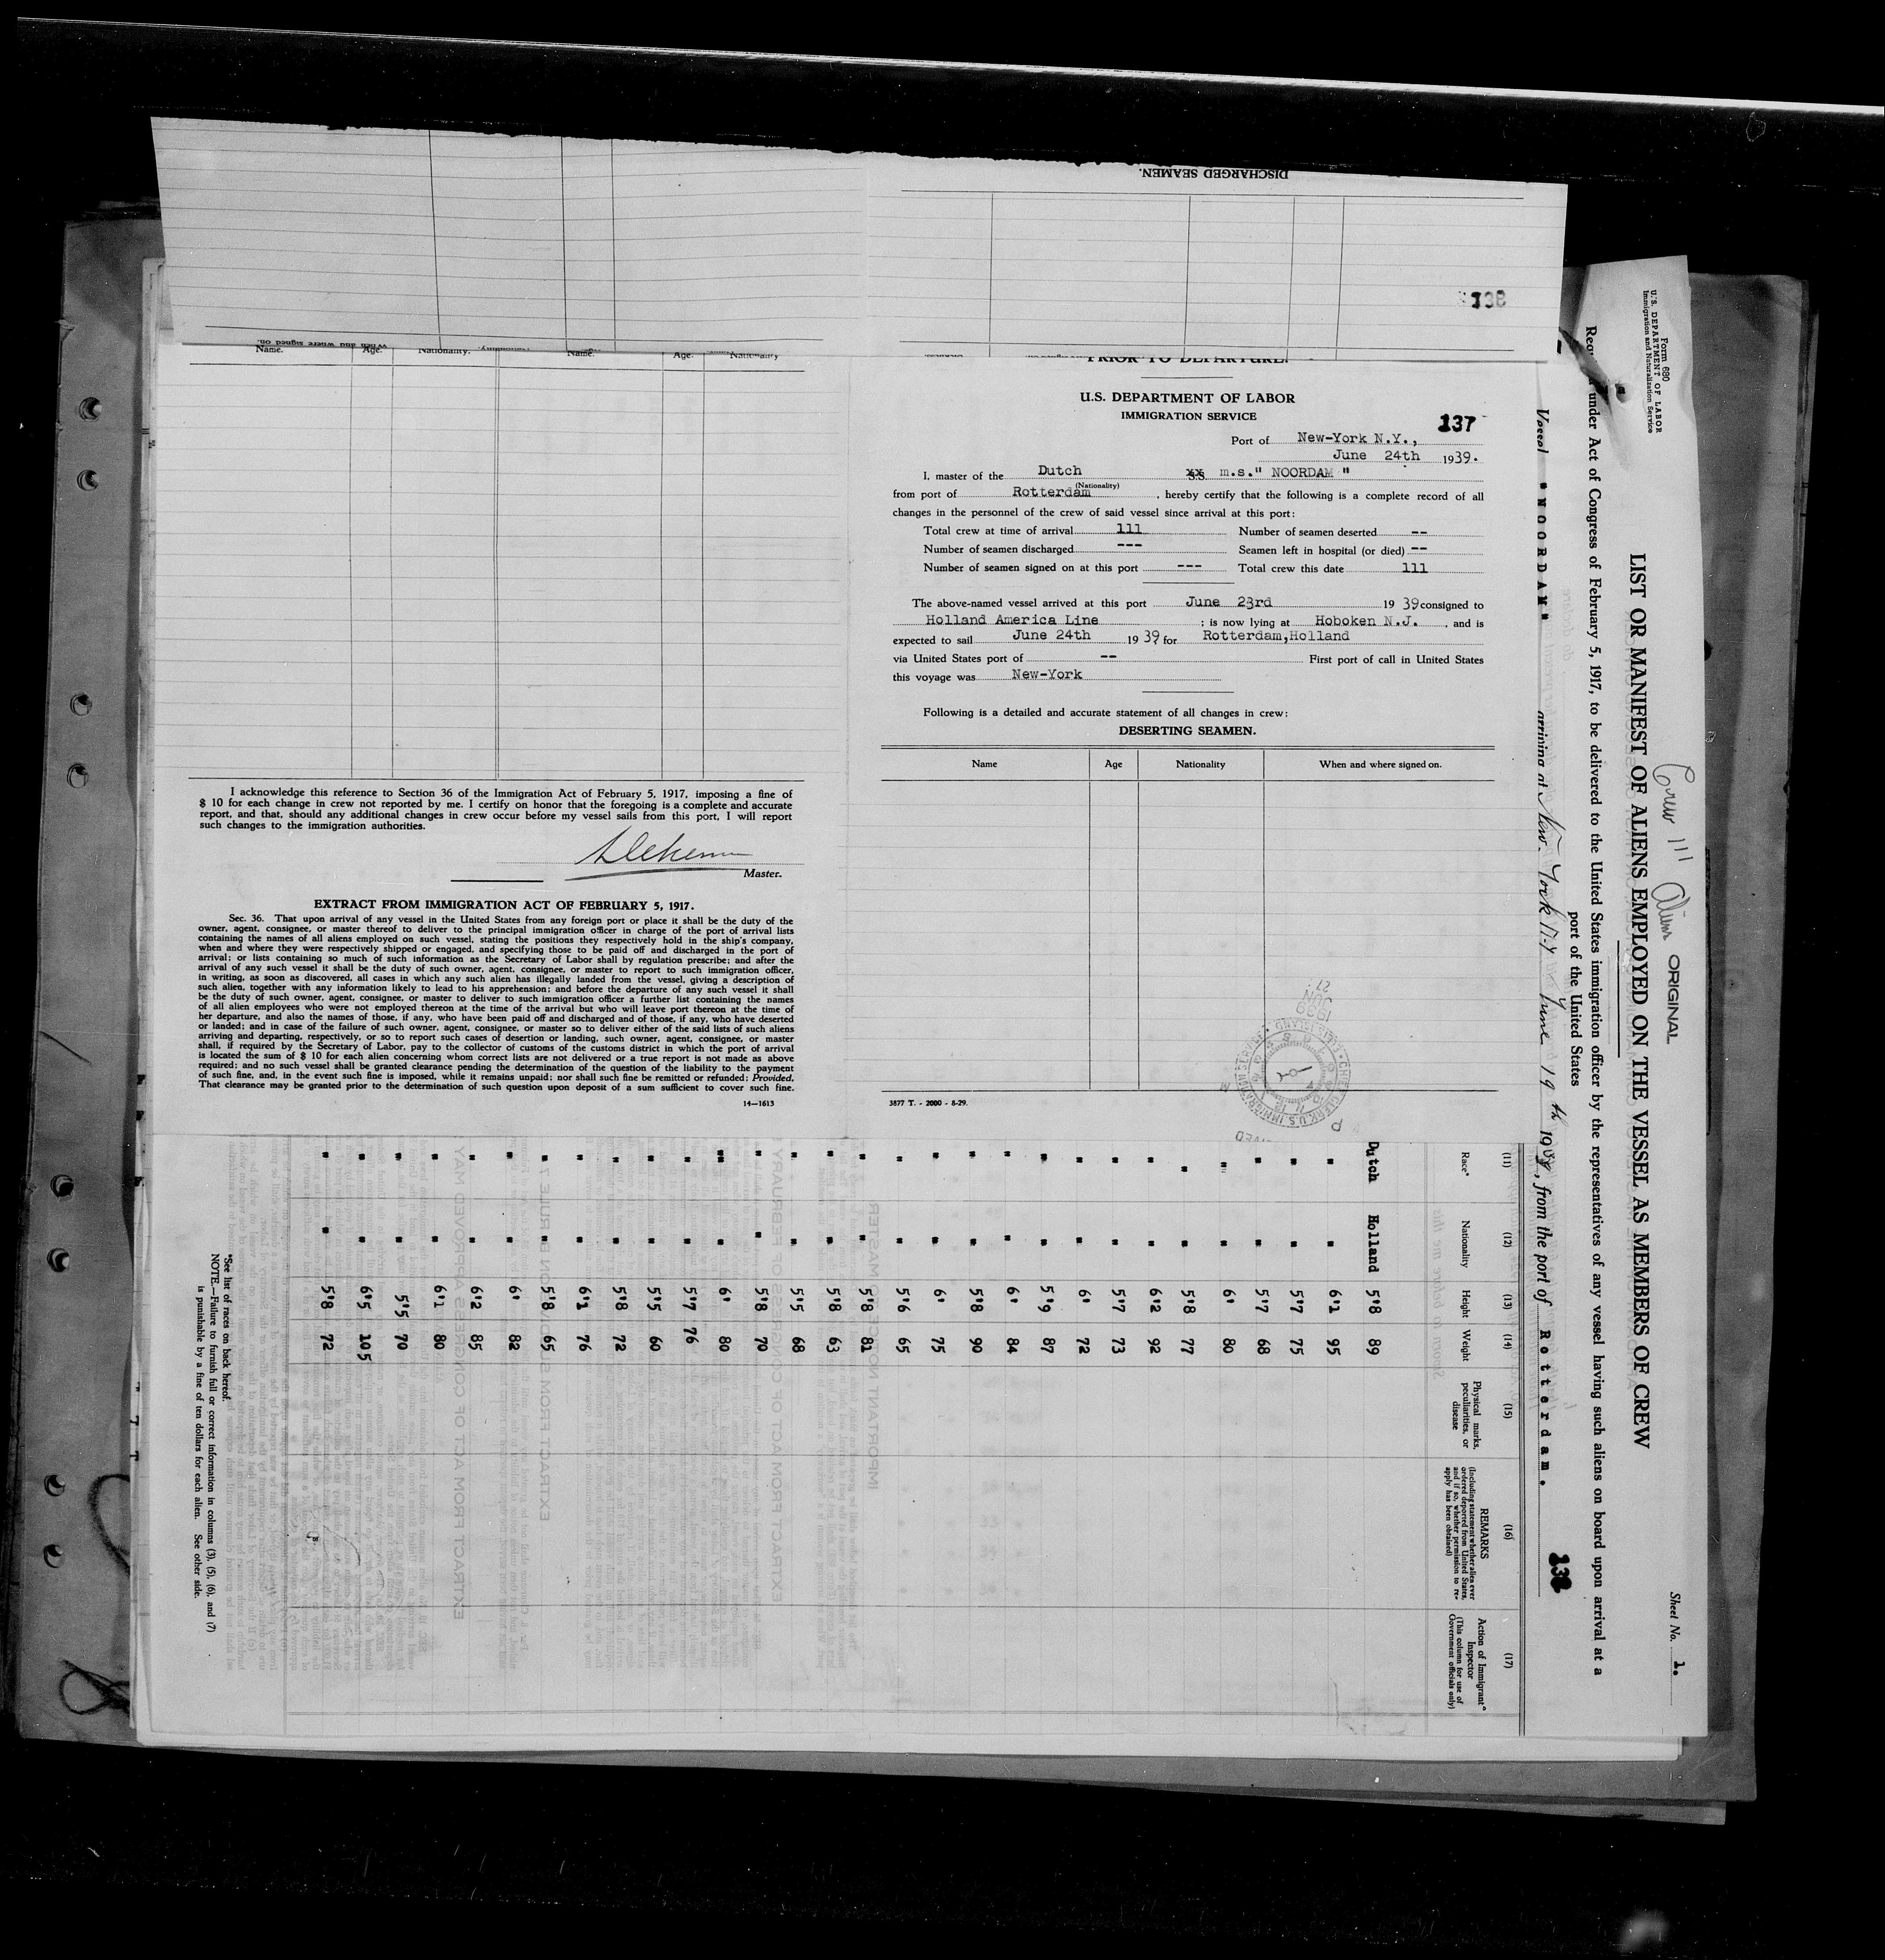 DISCHARGED SEAMEN.
138
When and where signed on.
Name. Age. Nationality. Name. Age. Nationality
PRIOR TO DEPARTURE.
U.S. DEPARTMENT OF LABOR
IMMIGRATION SERVICE
137
Port of New-York N.Y.,
June 24th 1939.
I, master of the Dutch S.S. m.s." NOORDAM "
(Nationality)
from port of Rotterdam, hereby certify that the following is a complete record of all
changes in the personnel of the crew of said vessel since arrival at this port:
Total crew at time of arrival 111 Number of seamen deserted --
Number of seamen discharged --- Seamen left in hospital (or died) --
Number of seamen signed on at this port --- Total crew this date 111
The above-named vessel arrived at this port June 23rd 1939 consigned to
Holland America Line ; is now lying at Hoboken N.J. , and is
expected to sail June 24th 1939 for Rotterdam,Holland
via United States port of -- First port of call in United States
this voyage was New-York
Following is a detailed and accurate statement of all changes in crew:
DESERTING SEAMEN.
Name Age Nationality When and where signed on.
27
JUN
1939
CHIEF CLERK, U.S. IMMIGRATION SERVICE · ELLIS ISLAND
3877 T. - 2000 - 8-29.
I acknowledge this reference to Section 36 of the Immigration Act of February 5, 1917, imposing a fine of
$ 10 for each change in crew not reported by me. I certify on honor that the foregoing is a complete and accurate
report, and that, should any additional changes in crew occur before my vessel sails from this port, I will report
such changes to the immigration authorities.
Master.
EXTRACT FROM IMMIGRATION ACT OF FEBRUARY 5, 1917.
Sec. 36. That upon arrival of any vessel in the United States from any foreign port or place it shall be the duty of the
owner, agent, consignee, or master thereof to deliver to the principal immigration officer in charge of the port of arrival lists
containing the names of all aliens employed on such vessel, stating the positions they respectively hold in the ship's company,
when and where they were respectively shipped or engaged, and specifying those to be paid off and discharged in the port of
arrival; or lists containing so much of such information as the Secretary of Labor shall by regulation prescribe; and after the
arrival of any such vessel it shall be the duty of such owner, agent, consignee, or master to report to such immigration officer,
in writing, as soon as discovered, all cases in which any such alien has illegally landed from the vessel, giving a description of
such alien, together with any information likely to lead to his apprehension; and before the departure of any such vessel it shall
be the duty of such owner, agent, consignee, or master to deliver to such immigration officer a further list containing the names
of all alien employees who were not employed thereon at the time of the arrival but who will leave port thereon at the time of
her departure, and also the names of those, if any, who have been paid off and discharged and of those, if any, who have deserted
or landed; and in case of the failure of such owner, agent, consignee, or master so to deliver either of the said lists of such aliens
arriving and departing, respectively, or so to report such cases of desertion or landing, such owner, agent, consignee, or master
shall, if required by the Secretary of Labor, pay to the collector of customs of the customs district in which the port of arrival
is located the sum of $ 10 for each alien concerning whom correct lists are not delivered or a true report is not made as above
required; and no such vessel shall be granted clearance pending the determination of the question of the liability to the payment
of such fine, and, in the event such fine is imposed, while it remains unpaid; nor shall such fine be remitted or refunded; Provided,
That clearance may be granted prior to the determination of such question upon deposit of a sum sufficient to cover such fine.
14—1613
Form 680
U.S. DEPARTMENT OF LABOR
Immigration and Naturalization Service
Crew 111 Aliens ORIGINAL
Sheet No. 1.
LIST OR MANIFEST OF ALIENS EMPLOYED ON THE VESSEL AS MEMBERS OF CREW
under Act of Congress of February 5, 1917, to be delivered to the United States immigration officer by the representatives of any vessel having such aliens on board upon arrival at a
port of the United States
Vessel "NOORDAM" arriving at New-York N.Y June 19th 1939, from the port of Rotterdam.
(11) (12) (13) (14) (15) (16) (17)
Race* Nationality Height Weight Physical marks, peculiarities, or disease
REMARKS
(Including statement whether alien ever ordered deported from United States, and if so, whether permission to reapply has been obtained)
Action of Immigrant Inspector
(This column for use of Government officials only)
Dutch Holland 5'8 89
" " 6'1 95
" " 5'7 75
" " 5'7 68
" " 6' 80
" " 5'8 77
" " 6'2 92
" " 5'7 73
" " 6' 72
" " 5'9 87
" " 6' 84
" " 5'8 90
" " 6' 75
" " 5'6 65
" " 5'8 81
" " 5'8 63
" " 5'5 68
" " 5'8 70
" " 6' 80
" " 5'7 76
" " 5'5 60
" " 5'8 72
" " 6'1 76
" " 5'8 65
" " 6' 82
" " 6'2 85
" " 6'1 80
" " 5'5 70
" " 6'5 105
" " 5'8 72
*See list of races on back hereof.
NOTE.—Failure to furnish full or correct information in columns (3), (5), (6), and (7)
is punishable by a fine of ten dollars for each alien. See other side.